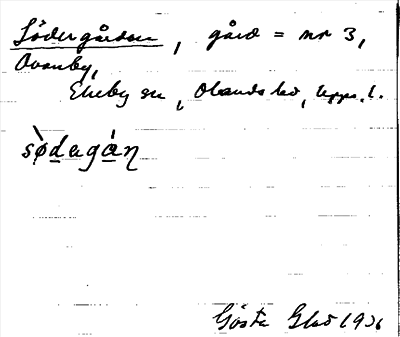 Södergården, gård = nr 3,
Ovanby,
Ekeby sn, Olands hd, Upps. l.
sǿ̀dagán
Gösta Glad 1926